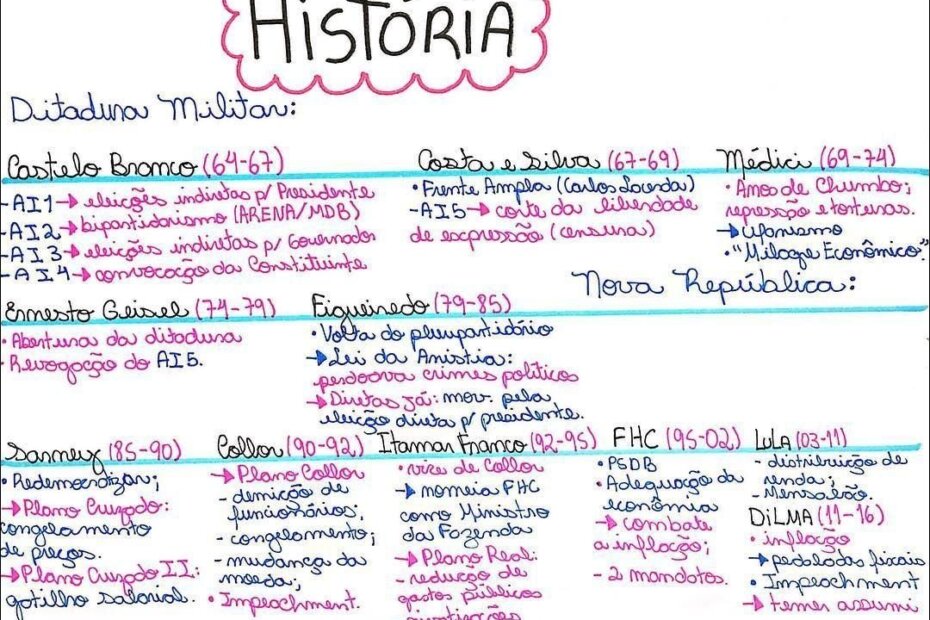 HISTÓRIA
Ditadura Militar:
Castelo Branco (64-67)
- AI1 → eleições indiretas p/ Presidente
- AI2 → bipartidarismo (ARENA/MDB)
- AI3 → eleições indiretas p/ Governador
- AI4 → convocação da Constituinte
Costa e Silva (67-69)
• Frente Ampla (Carlos Lacerda)
- AI5 → corte da liberdade
de expressão (censura)
Médici (69-74)
• Anos de Chumbo;
repressão e torturas.
→ Ufanismo
• "Milagre Econômico".
Ernesto Geisel (74-79)
• Abertura da ditadura
• Revogação do AI5.
Figueiredo (79-85)
• Volta do pluripartidário
→ Lei da Anistia:
perdoava crimes políticos
→ Diretas já: mov. pela
eleição direta p/ presidente.
Nova República:
Sarney (85-90)
• Redemocratizar;
→ Plano Cruzado:
congelamento
de preços.
→ Plano Cruzado II:
gatilho salarial.
Collor (90-92)
→ Plano Collor
- demição de
funcionários;
- congelamento;
- mudança da
moeda;
• Impeachment.
Itamar Franco (92-95)
• vice de Collor
→ nomeia FHC
como Ministro
da Fazenda
→ Plano Real:
- redução de
gastos públicos
FHC (95-02)
• PSDB
• Adequação da
economia
→ combate
a inflação;
- 2 mandatos.
LULA (03-11)
- distribuição de
renda;
- Mensalão.
DILMA (11-16)
• inflação
→ pedaladas fiscais
• Impeachment
→ temer assumi